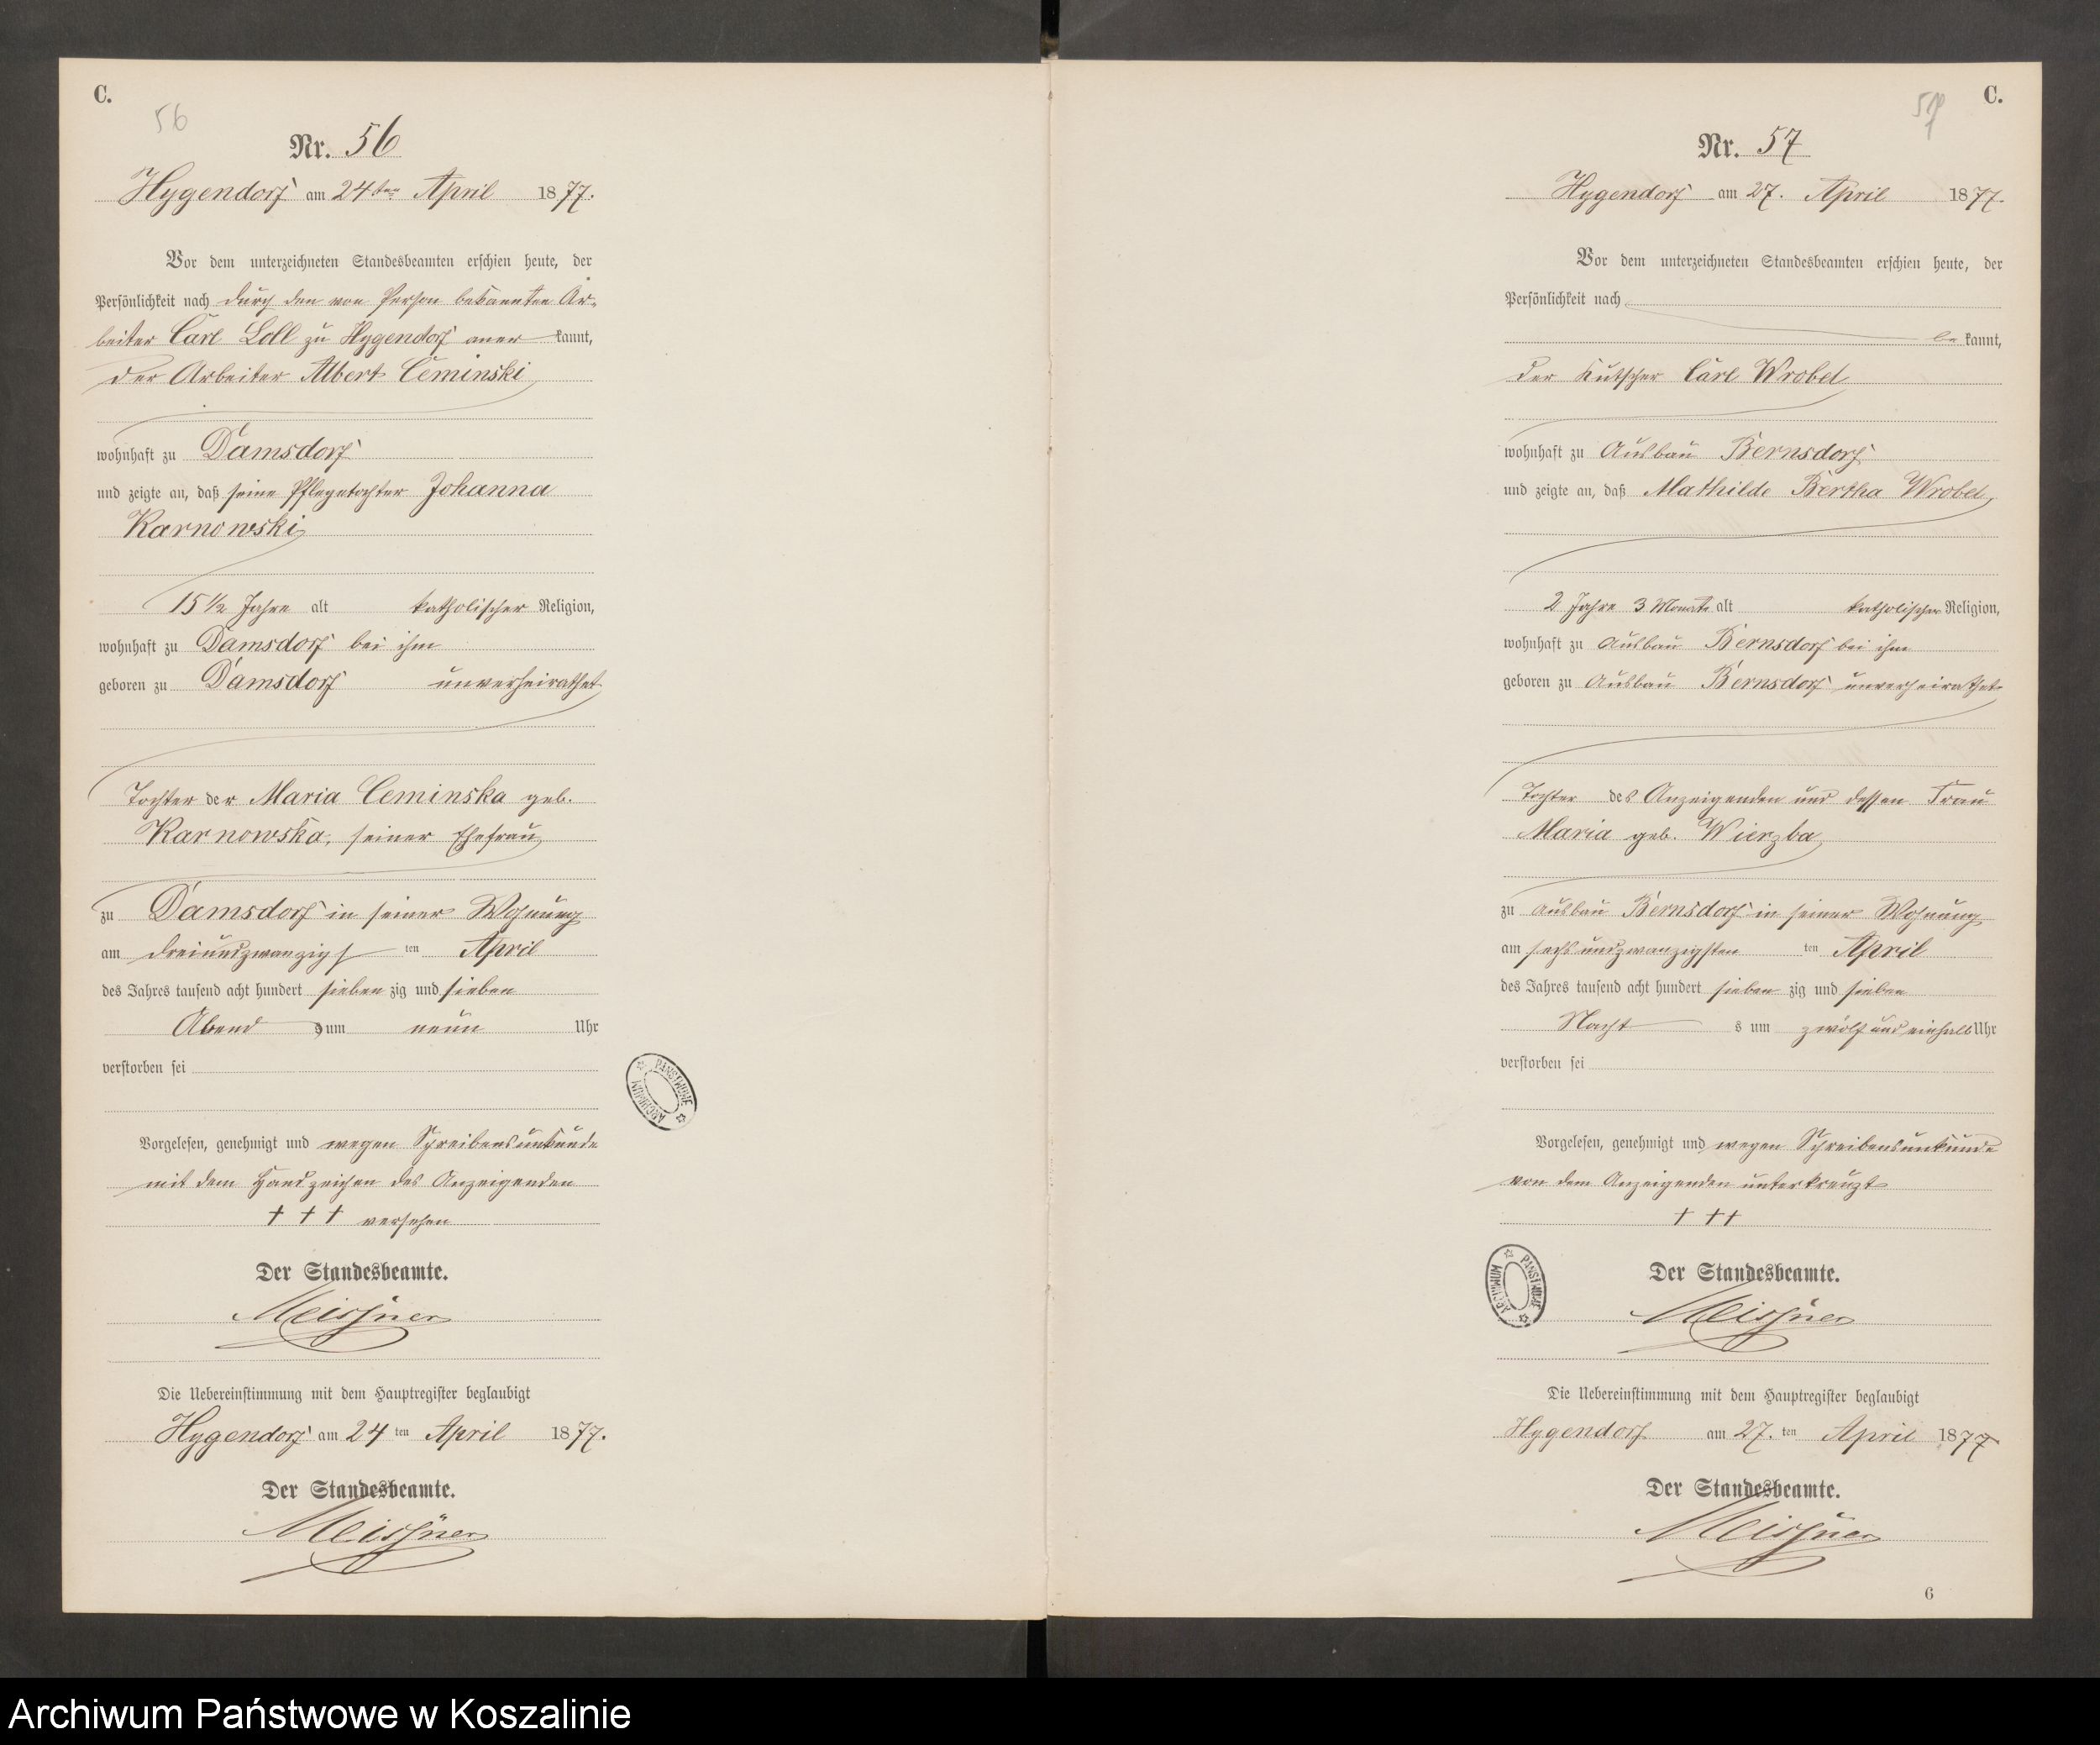 C.
56
Nr. 56
Hygendorf am 24ten April 1877.
Vor dem unterzeichneten Standesbeamten erschien heute, der
Persönlichkeit nach durch den von Person bekannten Ar-
beiter Carl Loll zu Hygendorf anerkannt,
der Arbeiter Albert Ceminski
wohnhaft zu Damsdorf
und zeigte an, daß seine Pflegetochter Johanna
Karnowski
15 1/2 Jahre alt katholischer Religion,
wohnhaft zu Damsdorf bei ihm
geboren zu Damsdorf unverheirathet
Tochter der Maria Ceminska geb.
Karnowska, seiner Ehefrau
zu Damsdorf in seiner Wohnung
am dreiundzwanzigsten April
des Jahres tausend acht hundert siebenzig und sieben
Abends um neun Uhr
verstorben sei
Vorgelesen, genehmigt und wegen Schreibensunkunde
mit dem Handzeichen des Anzeigenden
+ + + versehen
Der Standesbeamte.
Meissner
Die Uebereinstimmung mit dem Hauptregister beglaubigt
Hygendorf am 24ten April 1877.
Der Standesbeamte.
Meissner
ARCHIWUM PAŃSTWOWE
C.
57
Nr. 57
Hygendorf am 27. April 1877.
Vor dem unterzeichneten Standesbeamten erschien heute, der
Persönlichkeit nach
bekannt,
der Kutscher Carl Wrobel
wohnhaft zu Ausbau Bernsdorf
und zeigte an, daß Mathilde Bertha Wrobel,
2 Jahre 3 Monate alt katholischer Religion,
wohnhaft zu Ausbau Bernsdorf bei ihm
geboren zu Ausbau Bernsdorf unverheirathet
Tochter des Anzeigenden und dessen Frau
Maria geb. Wierzba
zu Ausbau Bernsdorf in seiner Wohnung
am sechsundzwanzigsten ten April
des Jahres tausend acht hundert sieben zig und sieben
Nachts um zwölf und einhalb Uhr
verstorben sei
Vorgelesen, genehmigt und wegen Schreibensunkunde
von dem Anzeigenden unterkreuzt
+ + +
Der Standesbeamte.
Meissner
Die Uebereinstimmung mit dem Hauptregister beglaubigt
Hygendorf am 27.ten April 1877
Der Standesbeamte.
Meissner
6
ARCHIWUM PAŃSTWOWE
Archiwum Państwowe w Koszalinie